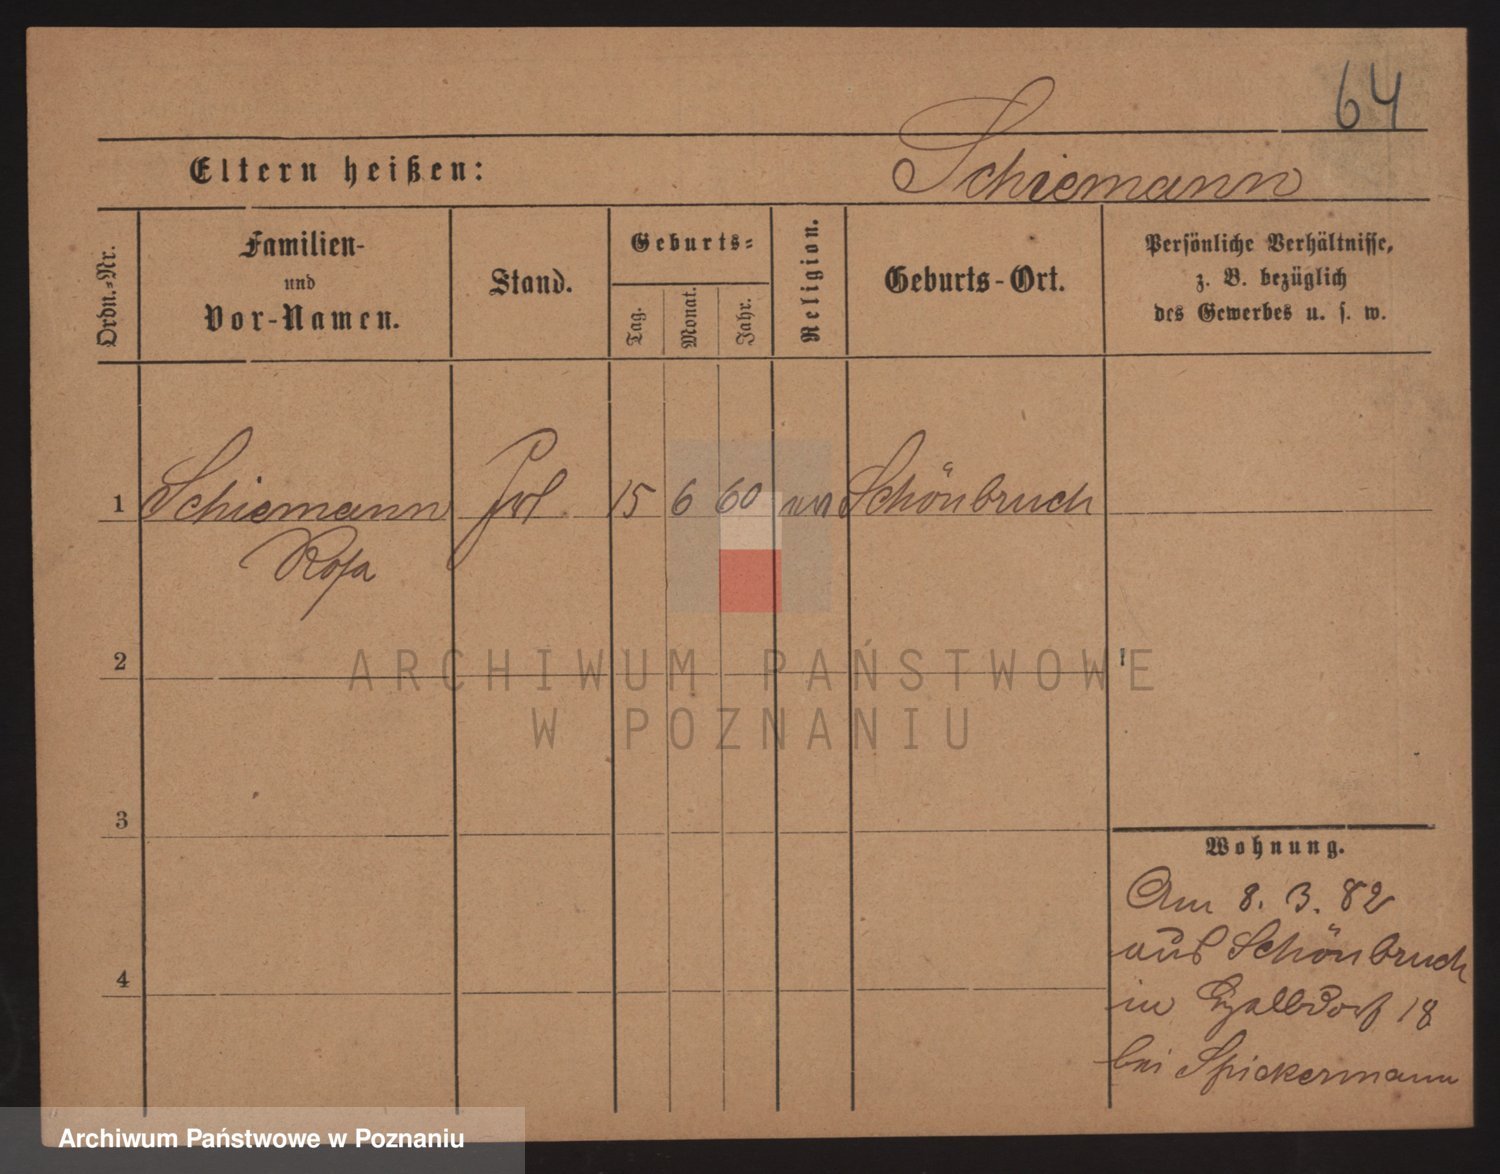 64
Eltern heißen: Schiemann
Ordn.-Nr.
Familien-
und
Vor-Namen.
Stand.
Geburts-
Tag.
Monat.
Jahr.
Religion.
Geburts-Ort.
Persönliche Verhältnisse,
z. B. bezüglich
des Gewerbes u. s. w.
1 Schiemann 15 6 60 Schönbruch
Rosa
2
3
4
Wohnung.
Am 8. 3. 82
aus Schönbruch
in 18
bei Spickermann
ARCHIWUM PAŃSTWOWE
W POZNANIU
Archiwum Państwowe w Poznaniu